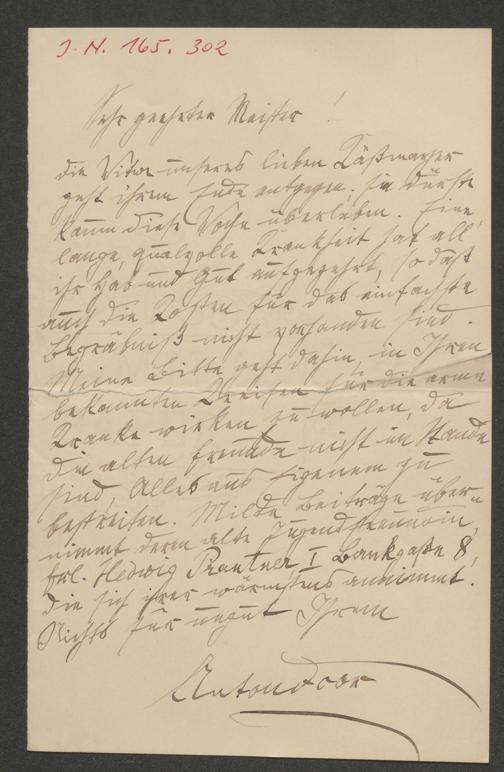 J. N. 165. 302
Sehr geehrter Meister!
die Witwe unseres lieben Käßmayer
geht ihrem Ende entgegen. Sie dürfte
kaum diese Woche überleben. Eine
lange, qualvolle Krankheit hat all'
ihr Hab und Gut aufgezehrt, so daß
auch die Kosten für das einfachste
Begräbniß nicht vorhanden sind.
Meine Bitte geht dahin, in Ihren
bekannten Kreisen für die arme
Kranke wirken zu wollen, da
die alten Freunde nicht im Stande
sind, Alles aus Eigenem zu
bestreiten. Milde Beiträge über-
nimmt deren alte Jugendfreundin,
Frl. Hedwig Prantner I Bankgaße 8,
die sich ihrer wärmstens annimmt.
Nichts für ungut Ihrem
Anton Door